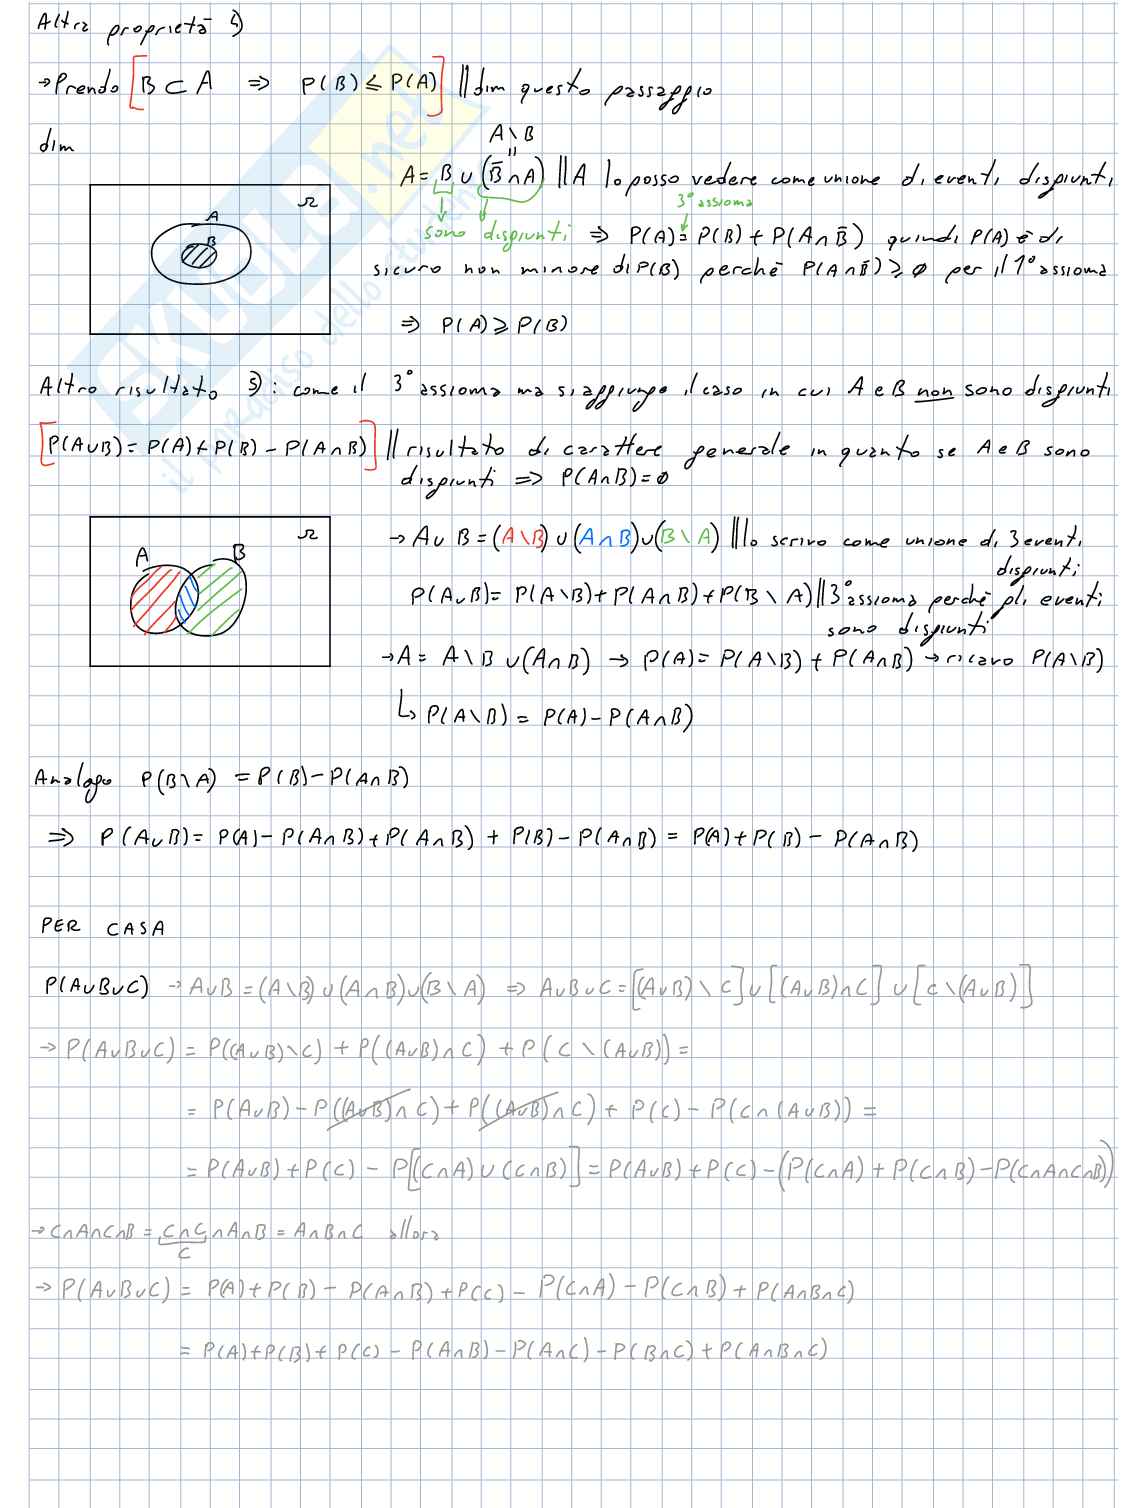 Altra proprietà 4)
→ Prendo [B ⊂ A ⇒ P(B) ≤ P(A)] || dim questo passaggio
dim
A\B
=
A = B ∪ (B̄ ∩ A) || A lo posso vedere come unione di eventi disgiunti
3° assioma
sono disgiunti ⇒ P(A) = P(B) + P(A ∩ B̄) quindi P(A) è di
sicuro non minore di P(B) perché P(A ∩ B̄) ≥ ∅ per il 1° assioma
⇒ P(A) ≥ P(B)
Ω
A
B
Altro risultato 5): come il 3° assioma ma si aggiunge il caso in cui A e B non sono disgiunti
[P(A∪B) = P(A) + P(B) - P(A∩B)] || risultato di carattere generale in quanto se A e B sono
disgiunti ⇒ P(A∩B) = ∅
Ω
A
B
→ A ∪ B = (A\B) ∪ (A∩B) ∪ (B\A) || lo scrivo come unione di 3 eventi
disgiunti
P(A∪B) = P(A\B) + P(A∩B) + P(B\A) || 3° assioma perché gli eventi
sono disgiunti
→ A = A\B ∪ (A∩B) → P(A) = P(A\B) + P(A∩B) → ricavo P(A\B)
↳ P(A\B) = P(A) - P(A∩B)
Analogo P(B\A) = P(B) - P(A∩B)
⇒ P(A∪B) = P(A) - P(A∩B) + P(A∩B) + P(B) - P(A∩B) = P(A) + P(B) - P(A∩B)
PER CASA
P(A∪B∪C) → A∪B = (A\B) ∪ (A∩B) ∪ (B\A) ⇒ A∪B∪C = [(A∪B)\C] ∪ [(A∪B)∩C] ∪ [C\(A∪B)]
→ P(A∪B∪C) = P((A∪B)\C) + P((A∪B)∩C) + P(C\(A∪B)) =
= P(A∪B) - P((A∪B)∩C) + P((A∪B)∩C) + P(C) - P(C∩(A∪B)) =
= P(A∪B) + P(C) - P[(C∩A) ∪ (C∩B)] = P(A∪B) + P(C) - (P(C∩A) + P(C∩B) - P(C∩A∩C∩B))
→ C∩A∩C∩B = C∩C∩A∩B = A∩B∩C allora
C
→ P(A∪B∪C) = P(A) + P(B) - P(A∩B) + P(C) - P(C∩A) - P(C∩B) + P(A∩B∩C)
= P(A) + P(B) + P(C) - P(A∩B) - P(A∩C) - P(B∩C) + P(A∩B∩C)
SKUOLA.net
il paradiso dello studente